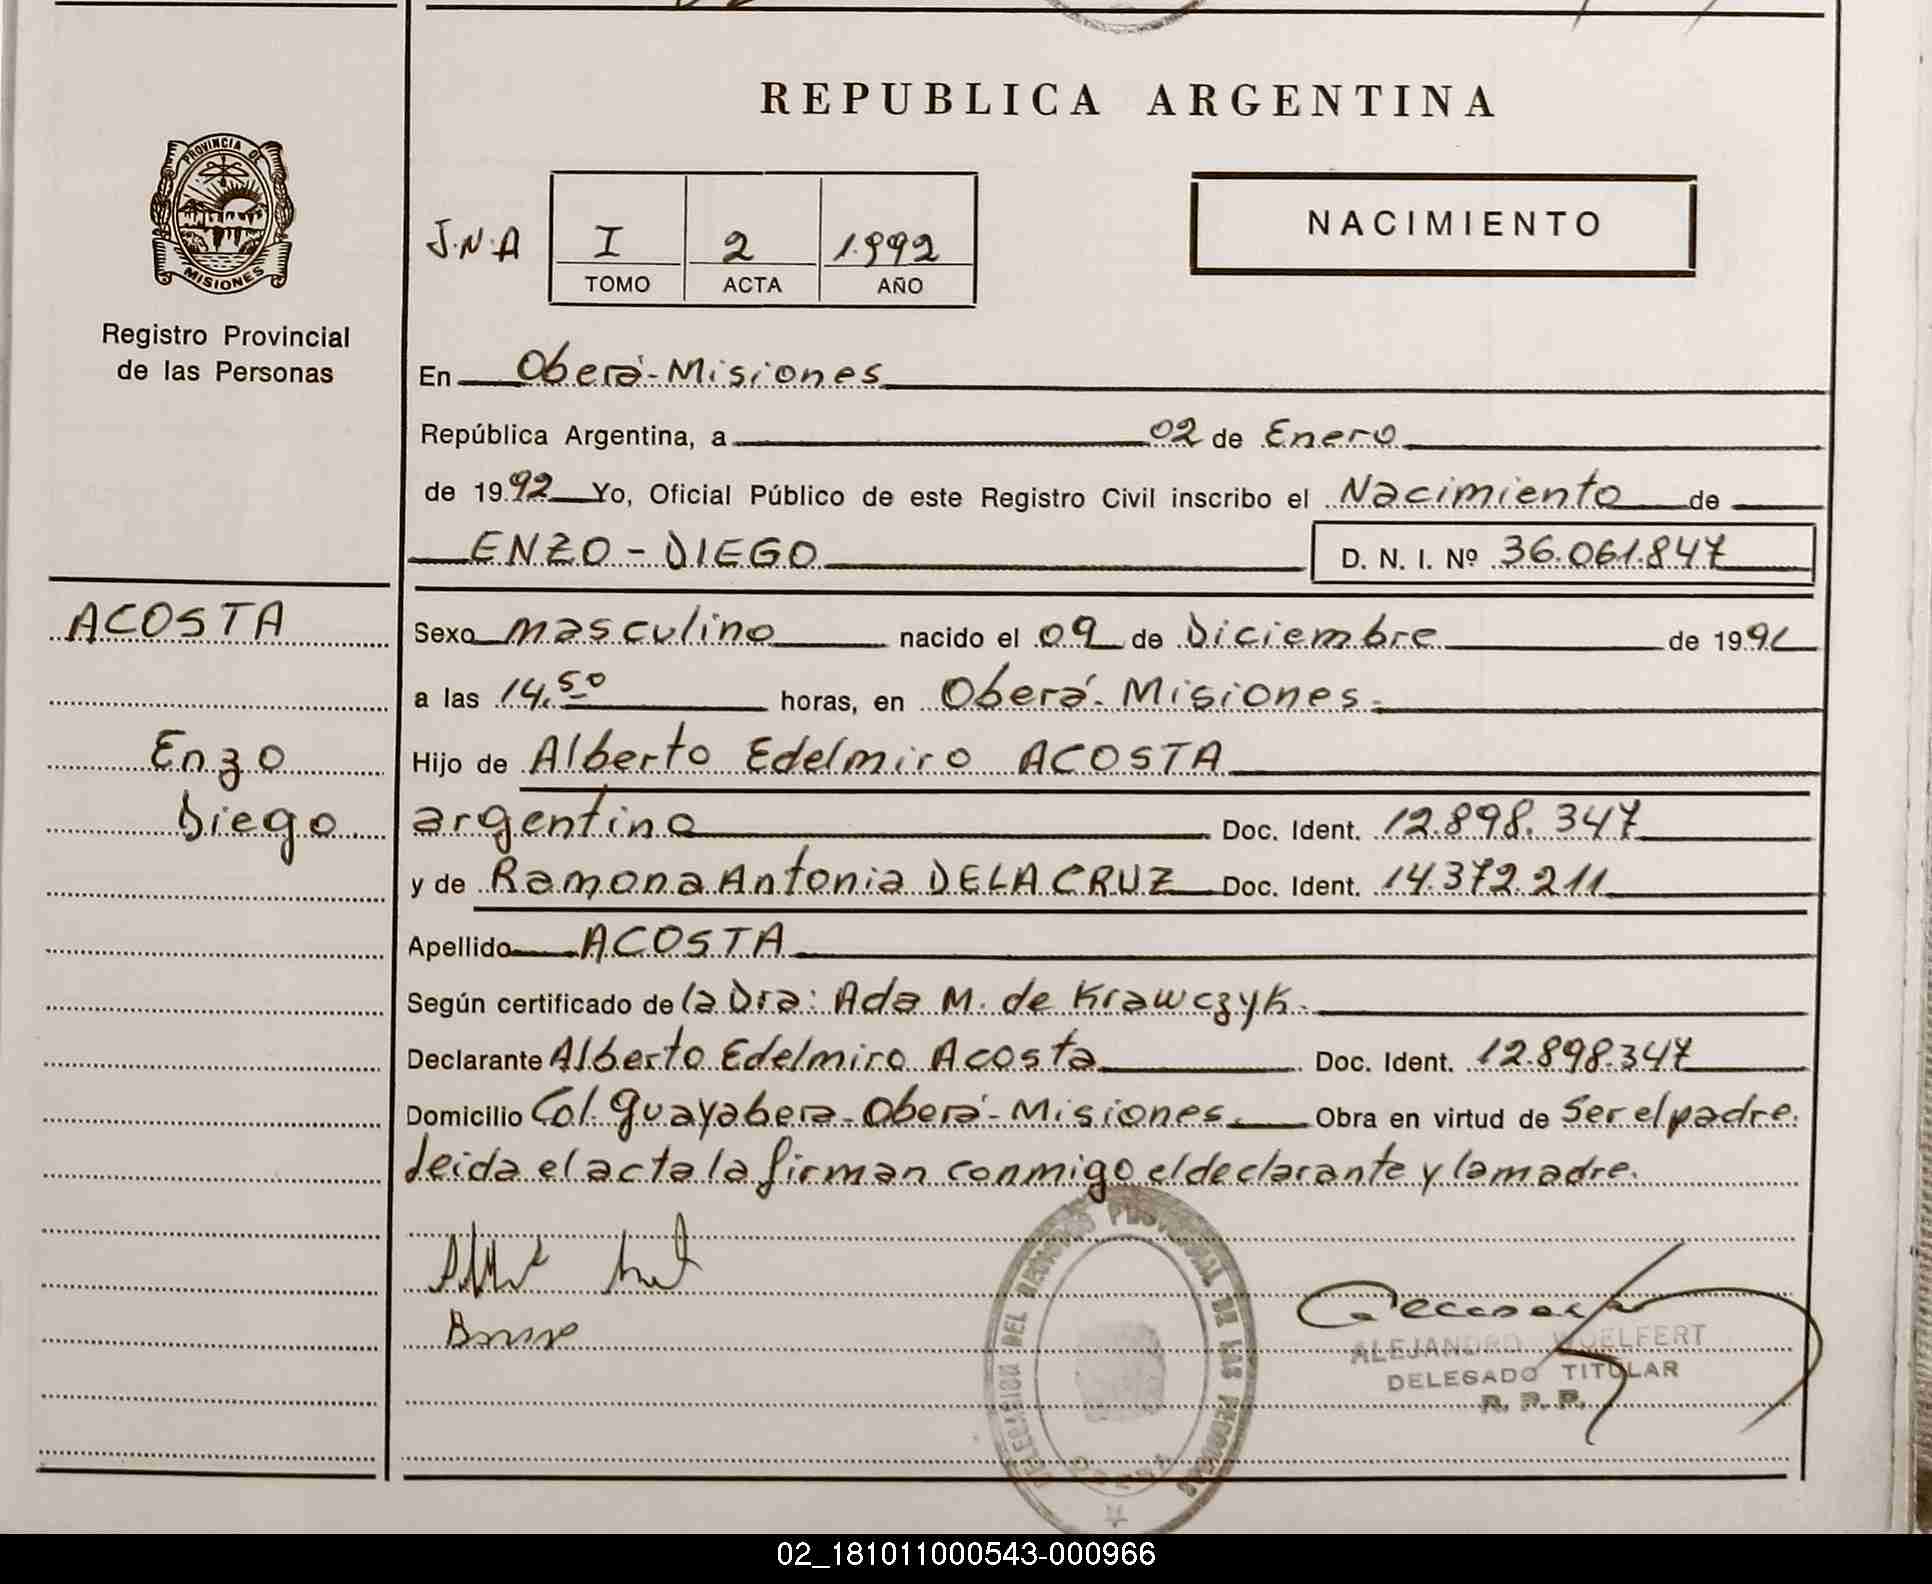 REPUBLICA ARGENTINA
PROVINCIA DE
MISIONES
Registro Provincial
de las Personas
J.N.A
I 2 1.992
TOMO ACTA AÑO
NACIMIENTO
En Oberá-Misiones
República Argentina, a 02 de Enero
de 1992 Yo, Oficial Público de este Registro Civil inscribo el Nacimiento de
ENZO-DIEGO D. N. I. Nº 36.061.847
ACOSTA
Enzo
Diego
Sexo masculino nacido el 09 de Diciembre de 1991
a las 14.50 horas, en Oberá-Misiones.
Hijo de Alberto Edelmiro ACOSTA
argentino Doc. Ident. 12.898.347
y de Ramona Antonia DE LA CRUZ Doc. Ident. 14.372.211
Apellido ACOSTA
Según certificado de la Dra: Ada M. de Krawczyk.
Declarante Alberto Edelmiro Acosta Doc. Ident. 12.898.347
Domicilio Col. Guayabera-Oberá-Misiones. Obra en virtud de Ser el padre.
Leida el acta la firman conmigo el declarante y la madre.
DELEGACION DEL REGISTRO PROVINCIAL DE LAS PERSONAS
OBERA
ALEJANDRO WOELFERT
DELEGADO TITULAR
R. P. P.
02_181011000543-000966